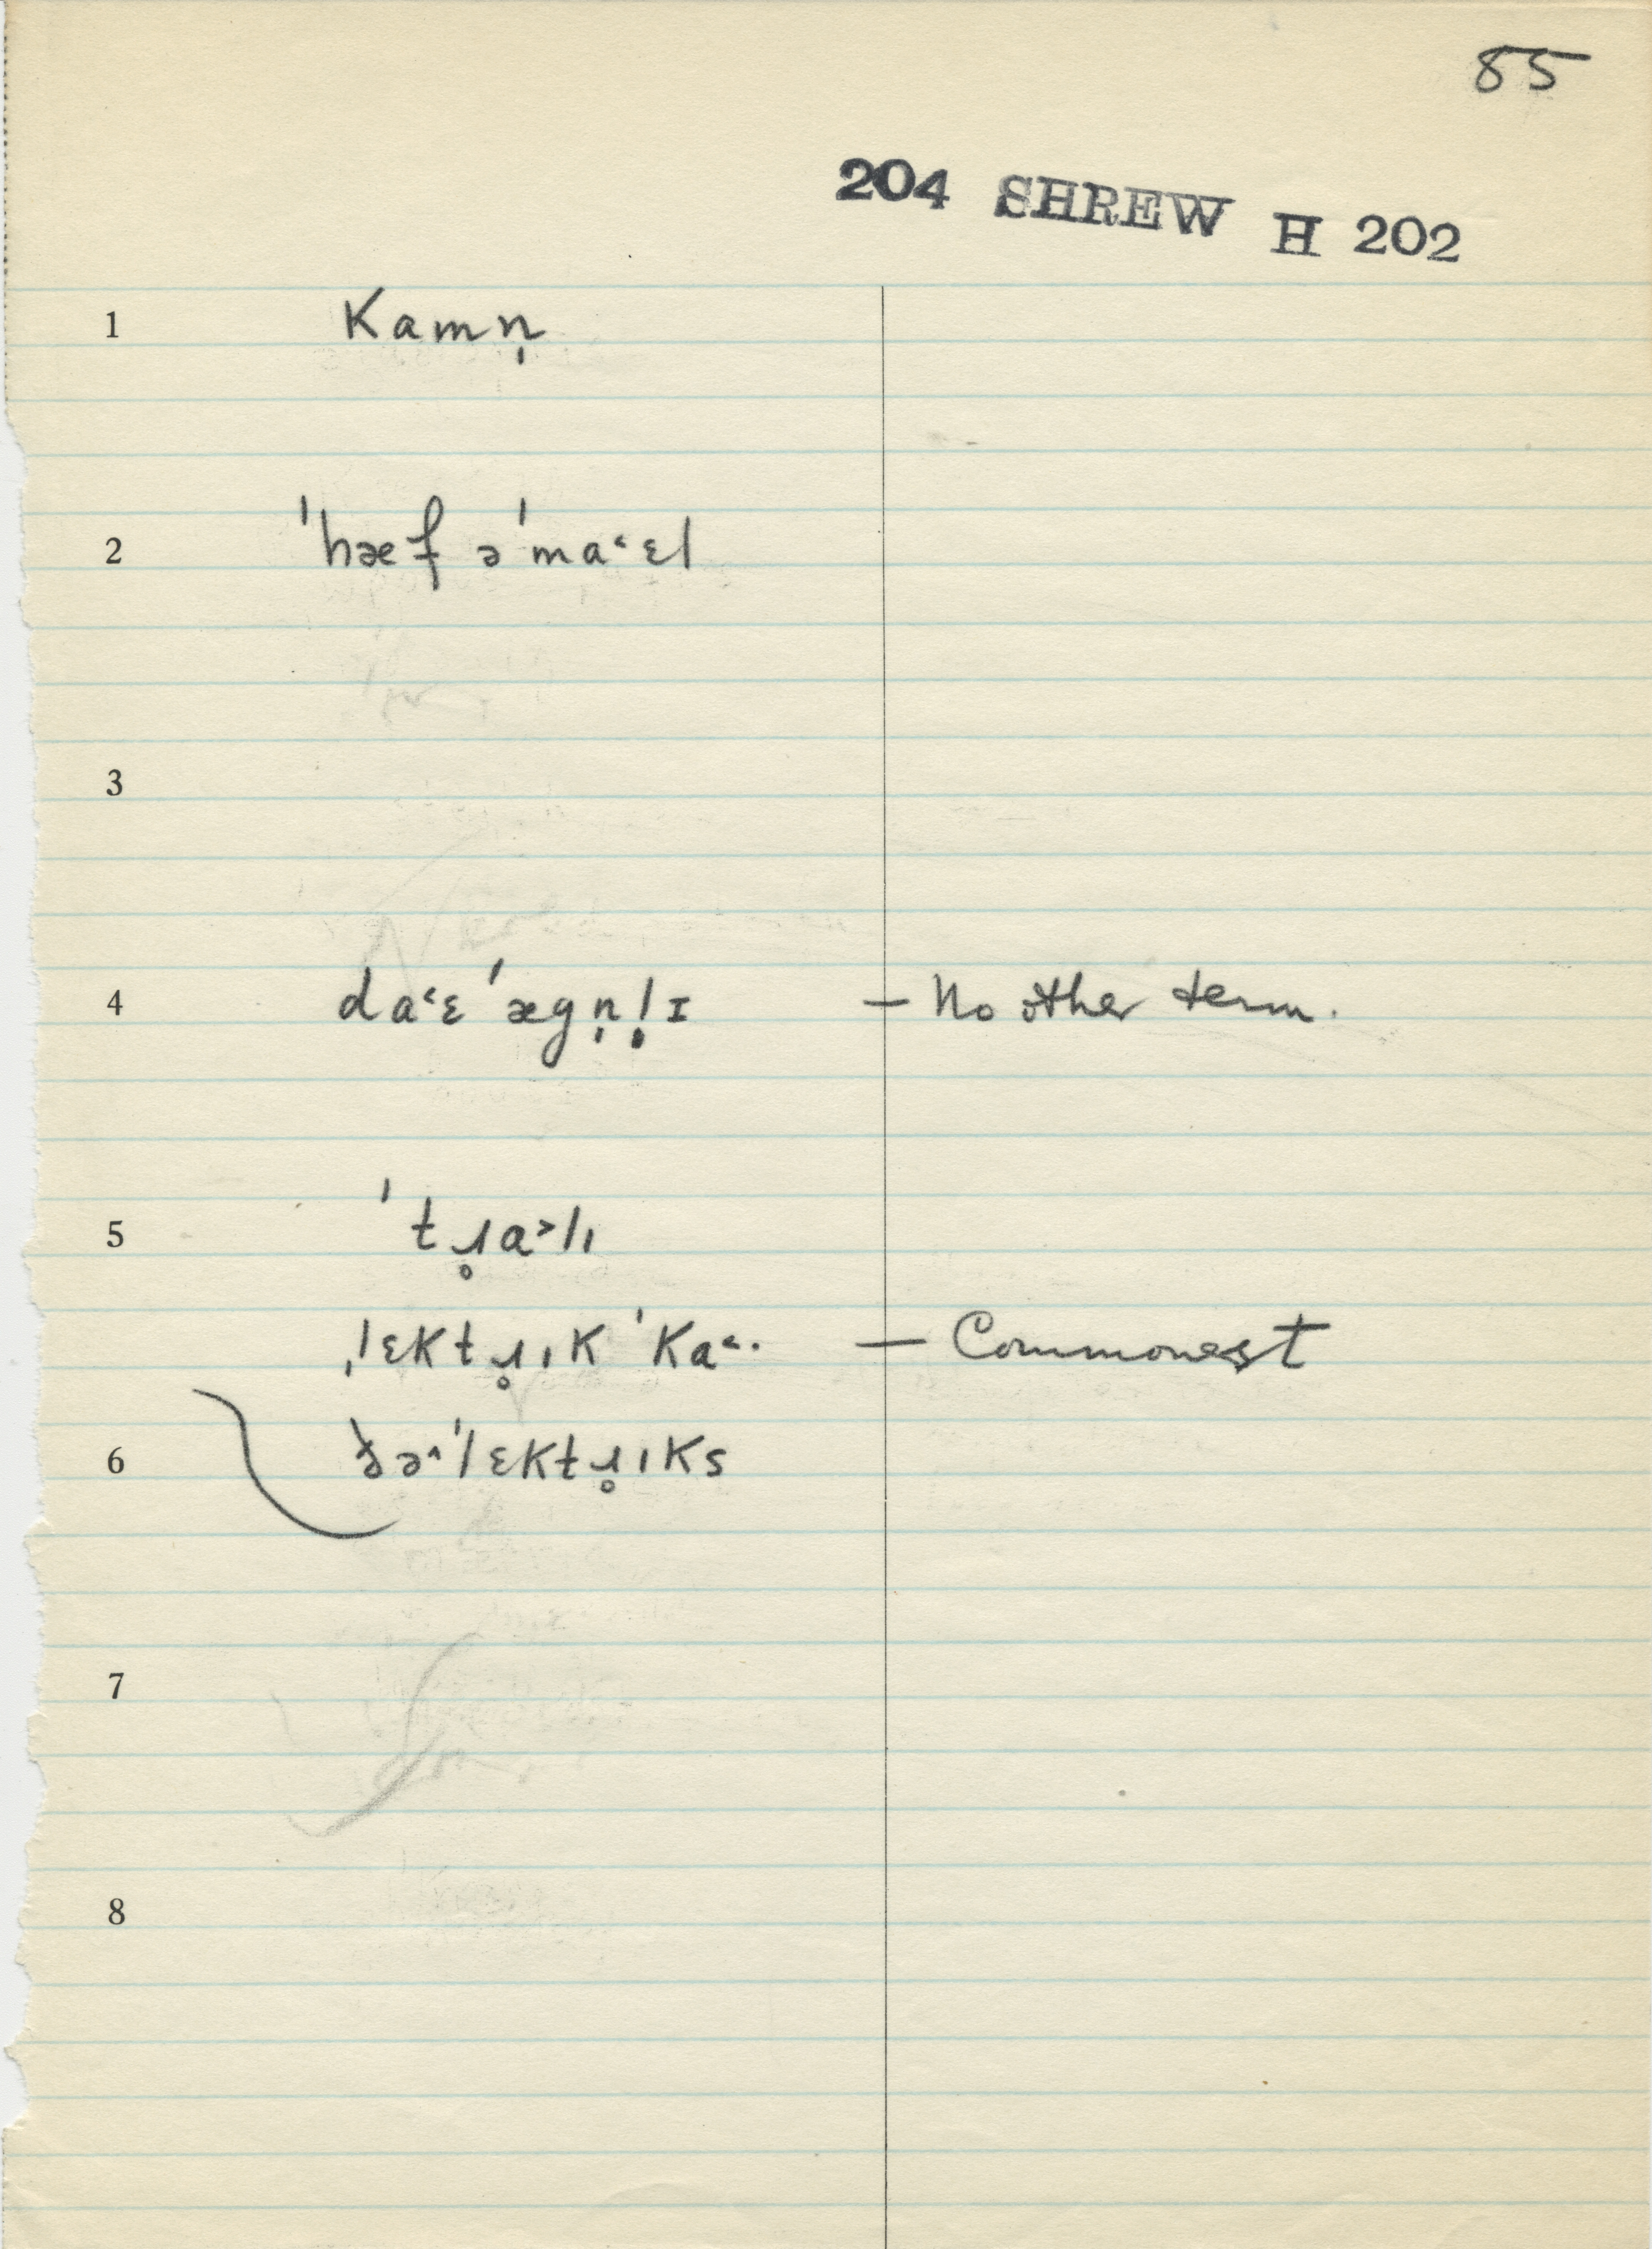 85
204 SHREW H 202
1 kamn̩
2 ˈhæf əˈma˂ɛl
3
4 da˂ɛˈægn̩l̩ɪ — No other term.
5 ˈtɹ̥a˃lɪ
ˌlɛktɹ̥ɪkˈka˂· — Commonest
6 ðə˄ˈlɛktɹ̥ɪks
7
8